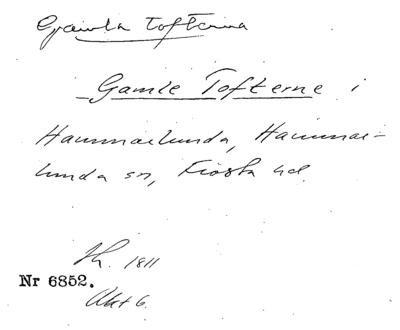 Gamla Tofterna
Gamle Tofterne i
Hammarlunda, Hammar-
lunda sn, Frosta hd.
Sk. 1811
Nr 6852.
Akt 6.